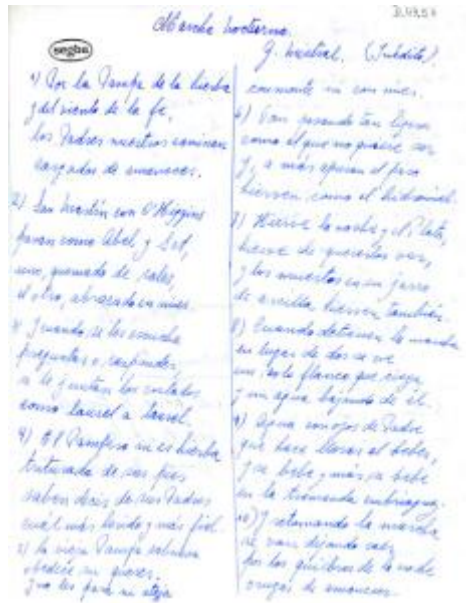 D.4957
Marcha nocturna.
segba
G. Mistral. (Inédito)
1) Por la Pampa de la hierba
y del viento de la fe,
los Padres nuestros caminan
cargados de amanecer.
2) San Martín con O'Higgins
pasan como Abel y Set,
uno, quemado de sales,
el otro, abrasado en mies.
3) Y cuando se les escucha
preguntar o responder,
se le juntan los costados
como laurel a laurel.
4) El Pampero ni es hierba
triturada de sus pies
saben decir de sus Padres
cuál más lindo y más fiel.
5) la vieja Pampa
obedece su querer,
y no les para ni ataja
ni con mies.
6) Van pasando tan ligeros
como el que no quiere ser
y a más apuran el paso
hierven como el hidromiel.
7) Hierve la noche y el Plata,
hierve de quererlos ver,
y los muertos en su jarro
de arcilla hierven también.
8) Cuando detienen la marcha
en lugar de dos se ve
un solo flanco que ciega
y un agua bajando de él.
9) Agua con ojos de Padre
que hace llorar al beber,
y se bebe y más se bebe
en la tremenda
10) Y retomando la marcha
se van dejando caer
por los quiebros de la noche
de amanecer.